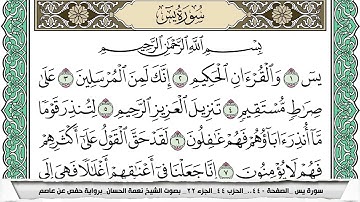 سُورَةُ يسٓ
بِسْمِ ٱللَّهِ ٱلرَّحْمَٰنِ ٱلرَّحِيمِ
يسٓ ١ وَٱلْقُرْءَانِ ٱلْحَكِيمِ ٢ إِنَّكَ لَمِنَ ٱلْمُرْسَلِينَ ٣ عَلَىٰ
صِرَٰطٍ مُّسْتَقِيمٍ ٤ تَنزِيلَ ٱلْعَزِيزِ ٱلرَّحِيمِ ٥ لِتُنذِرَ قَوْمًا
مَّآ أُنذِرَ ءَابَآؤُهُمْ فَهُمْ غَٰفِلُونَ ٦ لَقَدْ حَقَّ ٱلْقَوْلُ عَلَىٰٓ أَكْثَرِهِمْ
فَهُمْ لَا يُؤْمِنُونَ ٧ إِنَّا جَعَلْنَا فِىٓ أَعْنَٰقِهِمْ أَغْلَٰلًا فَهِىَ إِلَى
سورة يس _ الصفحة ٤٤٠ .. الحزب ٤٤ _ الجزء ٢٢ _ بصوت الشيخ نعمة الحسان _ برواية حفص عن عاصم